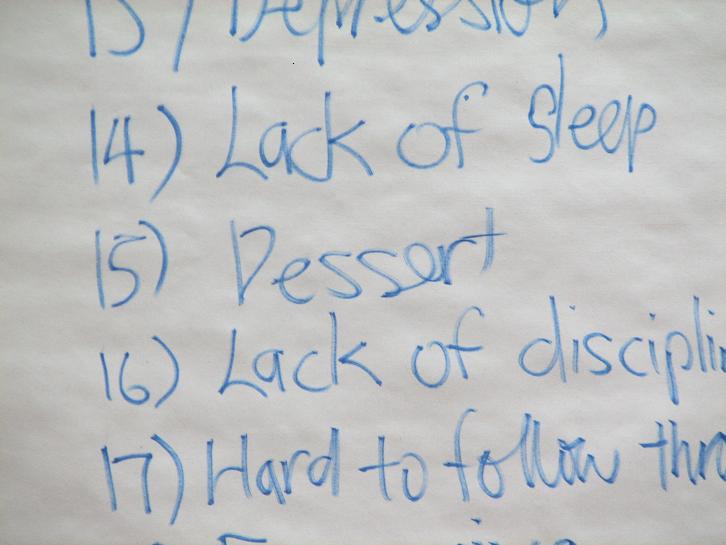 13) Depression
14) Lack of Sleep
15) Dessert
16) Lack of discipli
17) Hard to follow thro